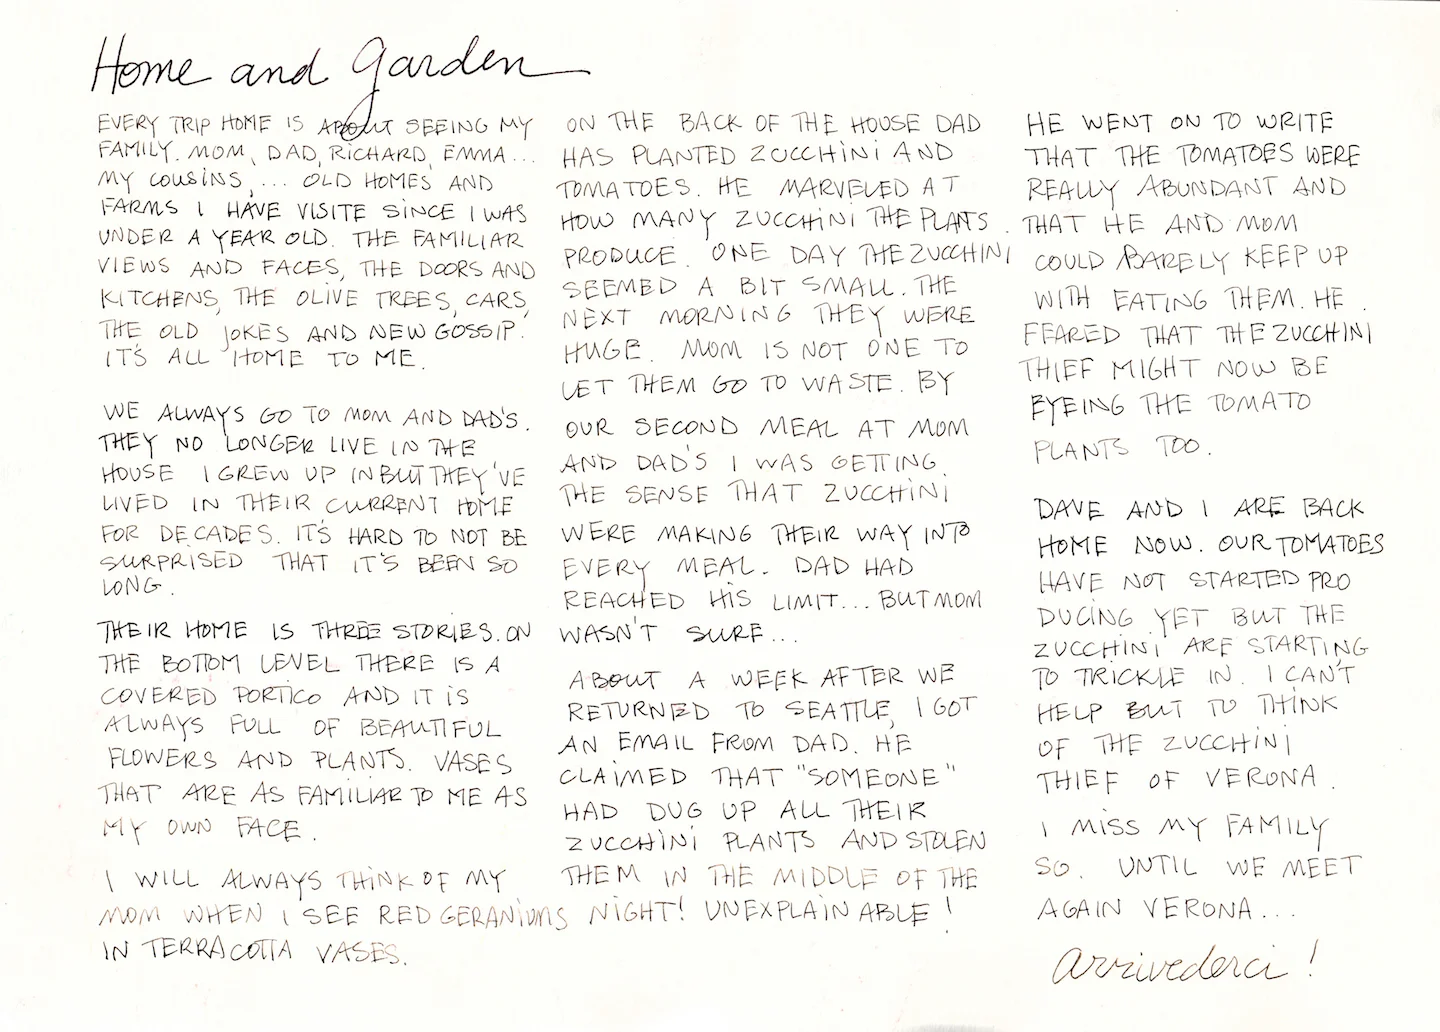 Home and Garden
EVERY TRIP HOME IS ABOUT SEEING MY
FAMILY. MOM, DAD, RICHARD, EMMA...
MY COUSINS,... OLD HOMES AND
FARMS I HAVE VISITE SINCE I WAS
UNDER A YEAR OLD. THE FAMILIAR
VIEWS AND FACES, THE DOORS AND
KITCHENS, THE OLIVE TREES, CARS,
THE OLD JOKES AND NEW GOSSIP.
IT'S ALL HOME TO ME.
WE ALWAYS GO TO MOM AND DAD'S.
THEY NO LONGER LIVE IN THE
HOUSE I GREW UP IN BUT THEY'VE
LIVED IN THEIR CURRENT HOME
FOR DECADES. IT'S HARD TO NOT BE
SURPRISED THAT IT'S BEEN SO
LONG.
THEIR HOME IS THREE STORIES. ON
THE BOTTOM LEVEL THERE IS A
COVERED PORTICO AND IT IS
ALWAYS FULL OF BEAUTIFUL
FLOWERS AND PLANTS. VASES
THAT ARE AS FAMILIAR TO ME AS
MY OWN FACE.
I WILL ALWAYS THINK OF MY
MOM WHEN I SEE RED GERANIUMS
IN TERRACOTTA VASES.
ON THE BACK OF THE HOUSE DAD
HAS PLANTED ZUCCHINI AND
TOMATOES. HE MARVELED AT
HOW MANY ZUCCHINI THE PLANTS
PRODUCE. ONE DAY THE ZUCCHINI
SEEMED A BIT SMALL. THE
NEXT MORNING THEY WERE
HUGE. MOM IS NOT ONE TO
LET THEM GO TO WASTE. BY
OUR SECOND MEAL AT MOM
AND DAD'S I WAS GETTING
THE SENSE THAT ZUCCHINI
WERE MAKING THEIR WAY INTO
EVERY MEAL. DAD HAD
REACHED HIS LIMIT... BUT MOM
WASN'T SURE...
ABOUT A WEEK AFTER WE
RETURNED TO SEATTLE, I GOT
AN EMAIL FROM DAD. HE
CLAIMED THAT "SOMEONE"
HAD DUG UP ALL THEIR
ZUCCHINI PLANTS AND STOLEN
THEM IN THE MIDDLE OF THE
NIGHT! UNEXPLAINABLE!
HE WENT ON TO WRITE
THAT THE TOMATOES WERE
REALLY ABUNDANT AND
THAT HE AND MOM
COULD BARELY KEEP UP
WITH EATING THEM. HE
FEARED THAT THE ZUCCHINI
THIEF MIGHT NOW BE
EYEING THE TOMATO
PLANTS TOO.
DAVE AND I ARE BACK
HOME NOW. OUR TOMATOES
HAVE NOT STARTED PRO
DUCING YET BUT THE
ZUCCHINI ARE STARTING
TO TRICKLE IN. I CAN'T
HELP BUT TO THINK
OF THE ZUCCHINI
THIEF OF VERONA.
I MISS MY FAMILY
SO. UNTIL WE MEET
AGAIN VERONA...
Arrivederci!